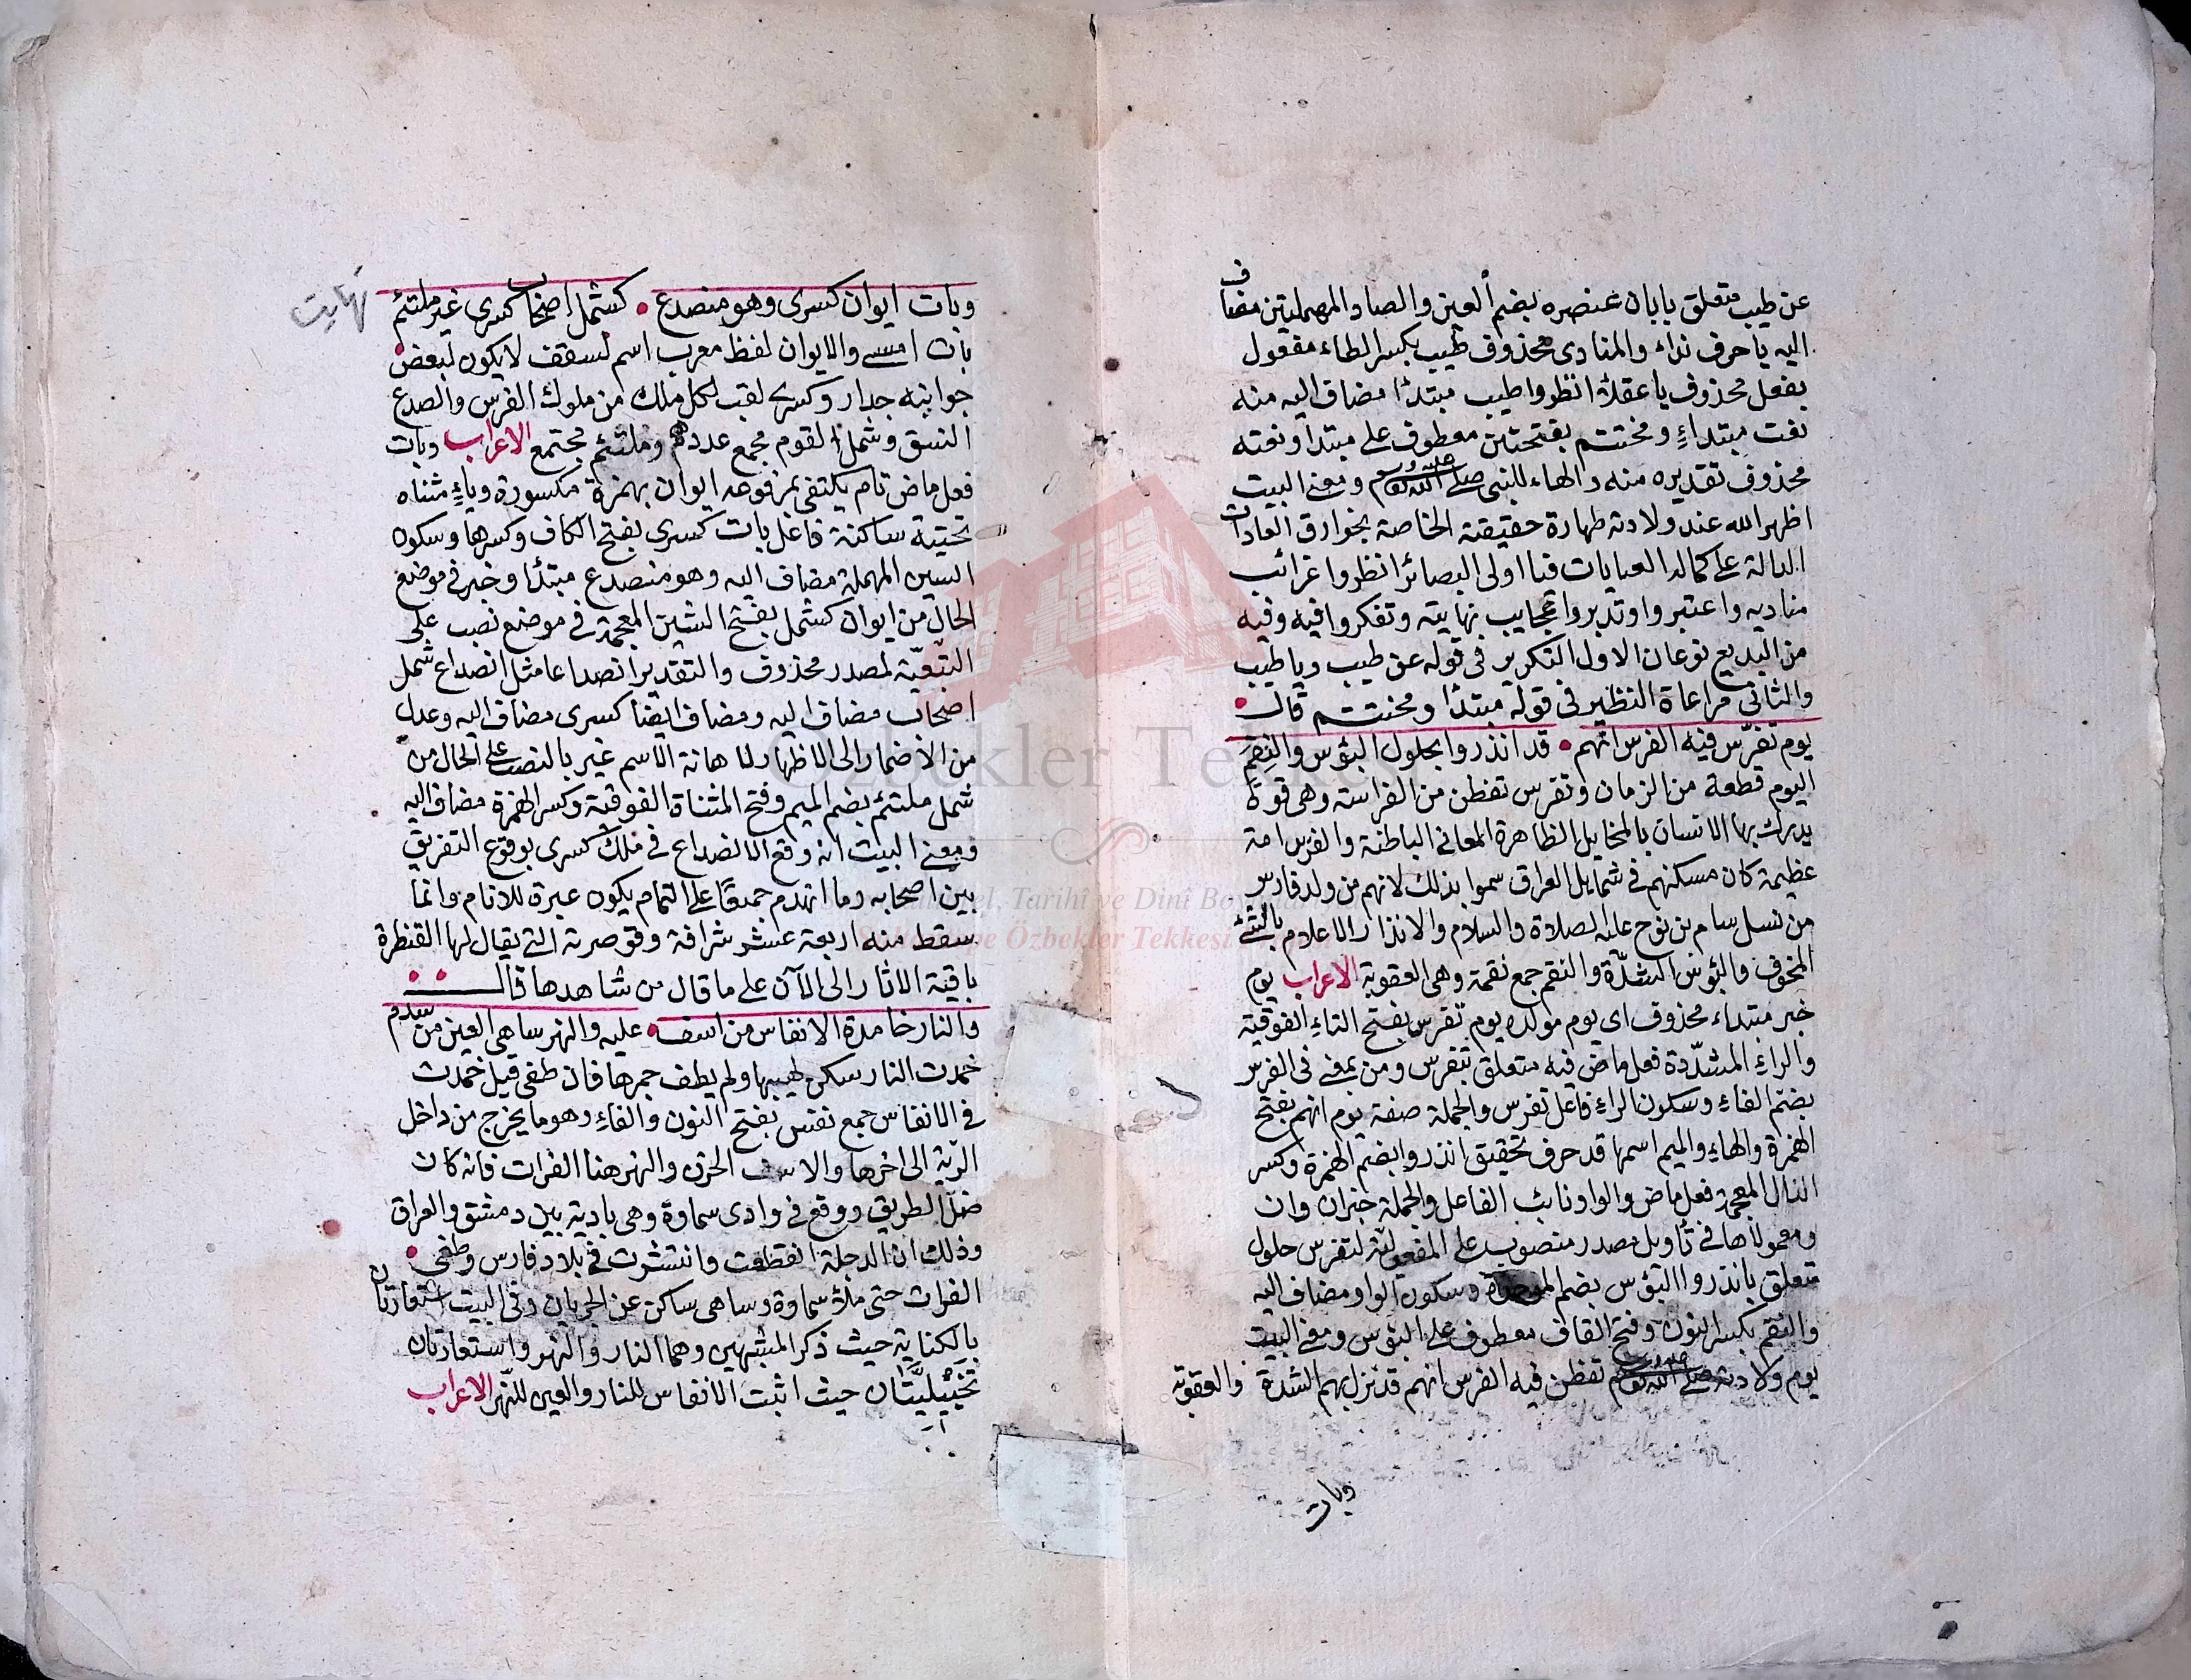 عن طيب متعلق بابان عنصره بضم العين والصاد المهملتين مضاف
اليه يا حرف نداء والمنادى محذوف طيب بكسر الطاء مفعول
بفعل محذوف يا عقلاء انظروا طيب مبتدأ مضاف اليه منه
نعت مبتداءٍ ومختتم بفتحتين معطوف على مبتدا ونعته
محذوف تقديره منه والهاء للنبى صلى الله عليه وسلم ومعنى البيت
اظهر الله عند ولادته طهارة حقيقته الخاصة بخوارق العادات
الدالة على كمال العنايات فيا اولى البصائر انظروا غرائب
مناديه واعتبروا وتدبروا عجايب نهايته وتفكروا فيه وفيه
من البديع نوعان الاول التكرير فى قوله عن طيب ويا طيب
والثانى مراعاة النظير فى قوله مبتدأ ومختتم قال
يوم تفرّس فيه الفرس انهم قد انذروا بحلول البؤس والنِقَمِ
اليوم قطعة من الزمان وتفرس تفطن من الفراسة وهى قوة
يدرك بها الانسان بالمخايل الظاهرة المعانى الباطنة والفرس امة
عظيمة كان مسكنهم فى شمايل العراق سموا بذلك لانهم من ولد فارس
من نسل سام بن نوح عليه الصلاة والسلام والانذار الاعلام بالشئ
المخوف والبؤس الشدّة والنقم جمع نقمة وهى العقوبة الاعراب يوم
خبر مبتداء محذوف اى يوم مولده يوم تفرس بفتح التاءِ الفوقية
والراءِ المشدّدة فعل ماض فيه متعلق بتفرس ومن بمعنى فى الفرس
بضم الفاءِ وسكون الراءِ فاعل تفرس والجملة صفة يوم انهم بفتح
الهمزة والهاءِ والميم اسمها قد حرف تحقيق انذروا بضم الهمزة وكسر
الذال المعجمة فعل ماض والواو نائب الفاعل والجملة خبر ان وان
ومعمولاها فى تأويل مصدر منصوب على المفعولية لتفرس حلول
متعلق بانذروا البؤس بضم الموحدة وسكون الواو مضاف اليه
والنقم بكسر النون وفتح القاف معطوف على البؤس ومعنى البيت
يوم ولادته صلى الله عليه وسلم تفطن فيه الفرس انهم قد نزل بهم الشدة والعقوبة
وبات
نهايت
وبات ايوان كسرى وهو منصدع كشمل اصحاب كسرى غير ملتئم
بات امسى والايوان لفظ معرب اسم لسقف لا يكون لبعض
جوانبه جدار وكسرى لقب لكل ملك من ملوك الفرس والصدع
الشق وشمل القوم مجمع عددهم وملتئم مجتمع الاعراب وبات
فعل ماض تام يكتفى بمرفوعه ايوان بهمزة مكسورة وياءٍ مثناه
تحتية ساكنة فاعل بات كسرى بفتح الكاف وكسرها وسكون
السين المهملة مضاف اليه وهو منصدع مبتدأ وخبر فى موضع
الحال من ايوان كشمل بفتح الشين المعجمة فى موضع نصب على
التبعيّة لمصدر محذوف والتقدير انصداعا مثل انصداع شمل
اصحاب مضاف اليه ومضاف ايضا كسرى مضاف اليه وعدل
من الاضمار الى الاظهار لاهانة الاسم غير بالنصب على الحال من
شمل ملتئم بضم الميم وفتح المثناة الفوقية وكسر الهمزة مضاف اليه
ومعنى البيت انه وقع الانصداع فى ملك كسرى بوقوع التفريق
بين اصحابه وما انهدم جميعًا على التمام يكون عبرة للانام وانما
سقط منه اربعة عشر شرافة وقوصرته التى يقال لها القنطرة
باقية الاثار الى الآن على ما قال من شاهدها قال
والنار خامدة الانفاس من اسف عليه والنهر ساهى العين من سدم
خمدت النار سكن لهيبها ولم يطف جمرها فان طفى قيل خمدت
فى الانفاس جمع نفس بفتح النون والفاءِ وهو ما يخرج من داخل
الرّية الى اخرها والاسف الحزن والنهر هنا الفرات فانه كان
ضل الطريق ووقع فى وادى سماوة وهى بادية بين دمشق والعراق
وذلك ان الدجلة انقطعت وانتشرت فى بلاد فارس وطفى
الفرات حتى ملأ سماوة وساهى ساكن عن الجريان وفى البيت استعارتان
بالكناية حيث ذكر المشبهين وهما النار والنهر واستعارتان
تخييليّتان حيث اثبت الانفاس للنار والعين للنّهر الاعراب